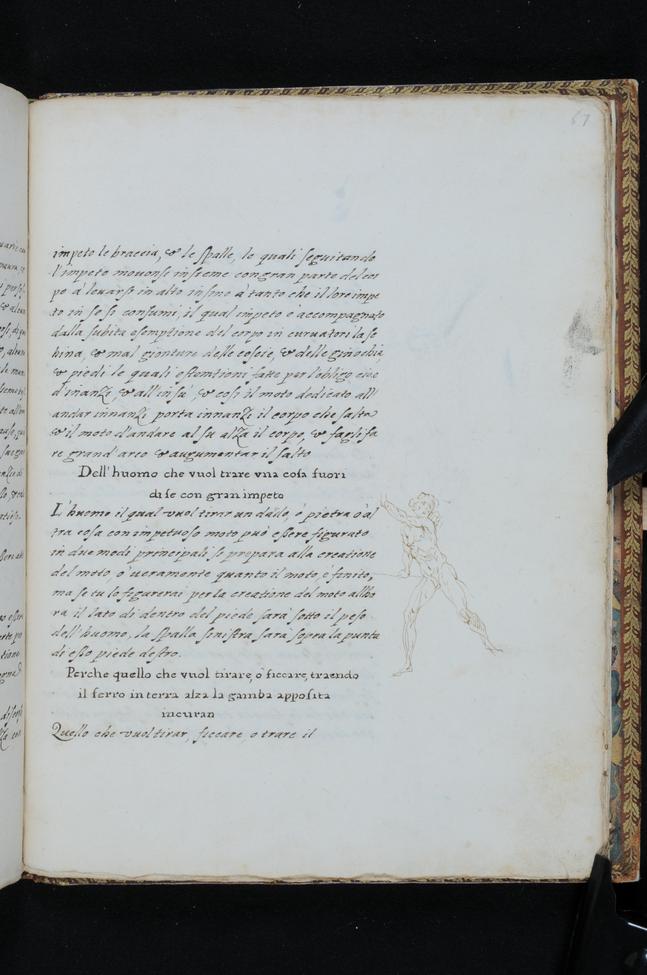 67
impeto le braccia, & le spalle, le quali seguitando
l'impeto mouonsi insieme con gran parte del cor
po à leuarsi in alto insino à tanto che il loro impe
to in se si consumi, il qual impeto è accompagnato
dalla subita estentione del corpo in curuatori la sc
hina, & nel gionture delle coscie, & delle ginochia
& piedi le quali estentioni fate per l'obligo cioè
d'inanZi, & all'in sù, & così il moto dedicato all'
andar innanZi porta innanZi il corpo che salta
& il moto d'andare al su alZa il corpo, & fagli fa
re grand'arco & augumentar il salto
Dell'huomo che vuol trare vna cosa fuori
di se con gran impeto
L'huomo il qual vuol tirar un dallo, ò pietra ò al
tra cosa con impetuoso moto può essere figurato
in due modi principali se prepara alla creatione
del moto, ò ueramente quanto il moto è finito,
ma se tu lo figurerai per la creatione del moto allho
ra il lato di dentro del piede sarà sotto il peso
dell'huomo, la spalla sinistra sarà sopra la punta
di esso piede destro.
Perche quello che vuol tirare, ò ficcare, traendo
il ferro in terra alza la gamba apposita
incuran
Quello che vuol tirar, ficcare, o trare il